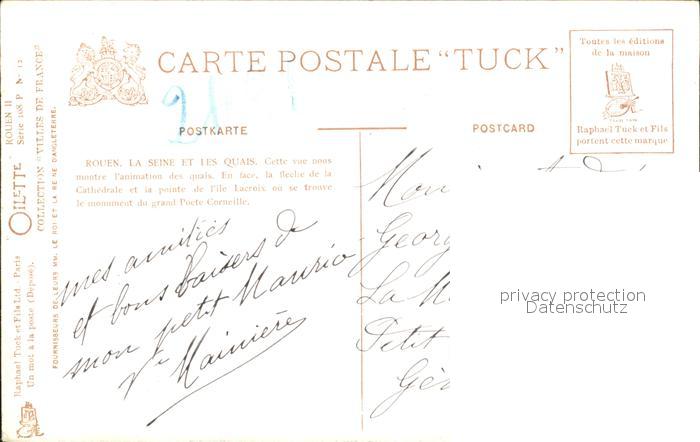 CARTE POSTALE "TUCK"
POSTKARTE
POSTCARD
Toutes les éditions
de la maison
Raphael Tuck et Fils
portent cette marque
ROUEN, LA SEINE ET LES QUAIS. Cette vue nous
montre l'animation des quais. En face, la fleche de la
Cathédrale et la pointe de l'ile Lacroix où se trouve
le monument du grand Poete Corneille.
mes amitiés
et bons baisers de
mon petit Maurice
Vve Mainière
Georg
La M
Petit
privacy protection
Datenschutz
OILETTE
ROUEN II
Série 108 P N° 12
COLLECTION "VILLES DE FRANCE"
FOURNISSEURS DE LEURS MM. LE ROI ET LA REINE D'ANGLETERRE.
Raphael Tuck et Fils Ltd - Paris
Un mot à la poste (Déposé).